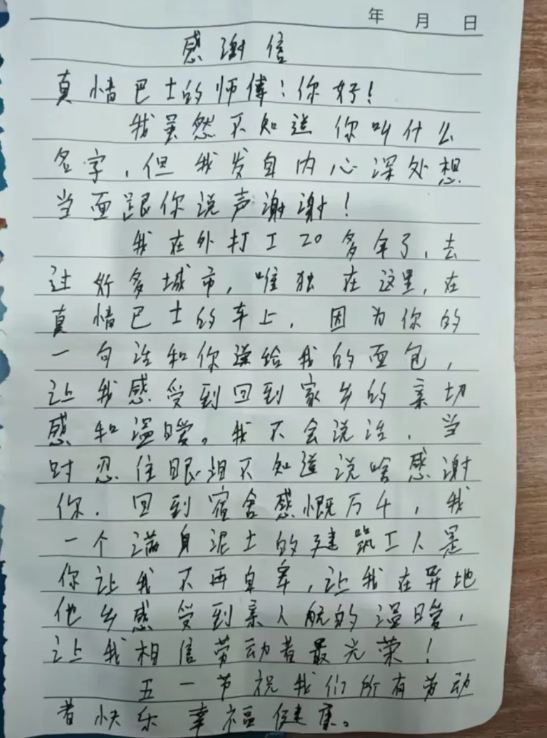 年 月 日
感谢信
真情巴士的师傅：你好！
我虽然不知道你叫什么
名字，但我发自内心深处想
当面跟你说声谢谢！
我在外打工20多年了，去
过好多城市，唯独在这里，在
真情巴士的车上，因为你的
一句话和你递给我的面包，
让我感受到回到家乡的亲切
感和温暖。我不会说话，当
时忍住眼泪不知道说啥感谢
你．回到宿舍感慨万千，我
一个满身泥土的建筑工人是
你让我不再自卑，让我在异地
他乡感受到亲人般的温暖，
让我相信劳动者最光荣！
五一节祝我们所有劳动
者快乐 幸福健康。